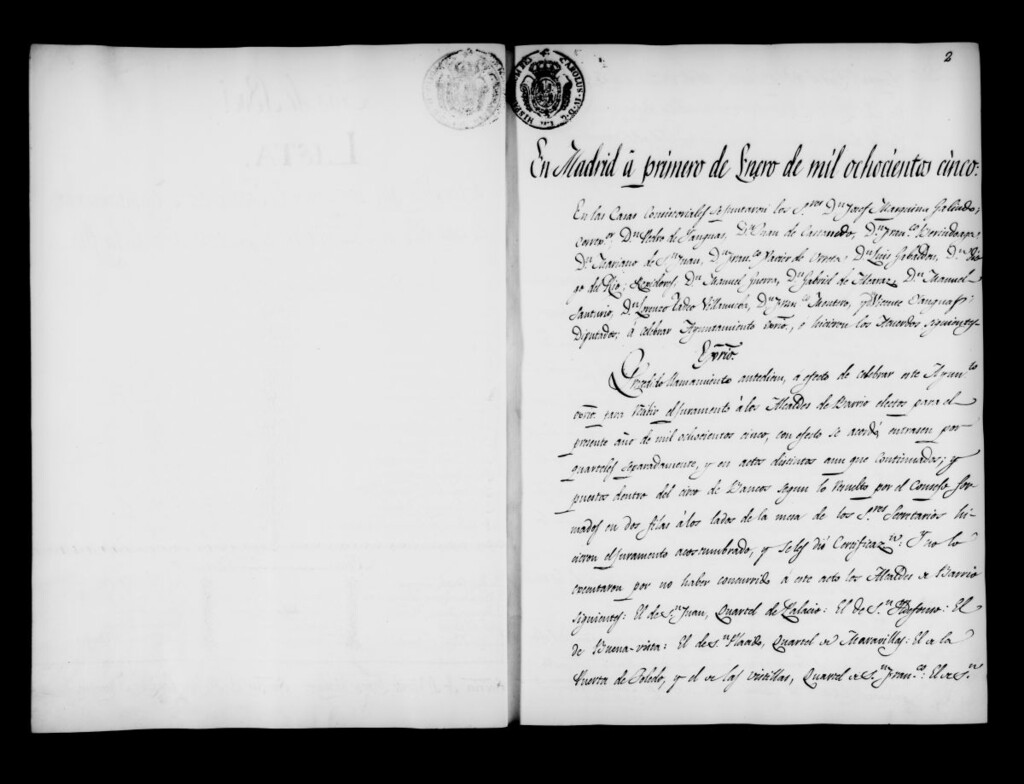 2
CAROLUS IV D. G. HISPAN. REX
En Madrid á primero de Enero de mil ochocientos cinco:
En las Casas Consistoriales se juntaron los S.res D.n Josef Marquina Galindo,
Correx.or, D.n Pedro de D.n Juan de Castanedo, D.n Fran.co
D.n Mariano de S.n Juan, D.n Fran.co Xavier de D.n Luis Gabaldon, D.n
go del Rio; Rexidores, D.n Manuel Guerra, D.n Gabriel de Alcaraz, D.n Manuel
Santurio, D.n Lorenzo Villanueva, D.n Fran.co Montero, y D.n Vicente
Diputados; á celebrar Ayuntamiento, é hicieron los Acuerdos siguientes
llamamiento antediem, a efecto de celebrar este Ayun.to
para el juramento á los Alcaldes de Barrio electos para el
presente año de mil ochocientos cinco, con efecto se acordó, entrasen por
quarteles separadamente, y en actos distintos aun que continuados; y
puestos dentro del de Bancos segun lo resuelto por el Consejo for-
mados en dos filas á los lados de la mesa de los S.res Secretarios hi-
cieron el juramento acostumbrado, y se les dió Certificaz.n: Y no lo
executaron por no haber concurrido á este acto los Alcaldes de Barrio
siguientes: El de S.n Juan, Quartel de Palacio: El de S.n Ildefonso: El
de Buena-vista: El de S.n Plazido, Quartel de Maravillas: El de la
Puerta de Toledo, y el de las vistillas, Quartel de S.n Fran.co: El de S.n